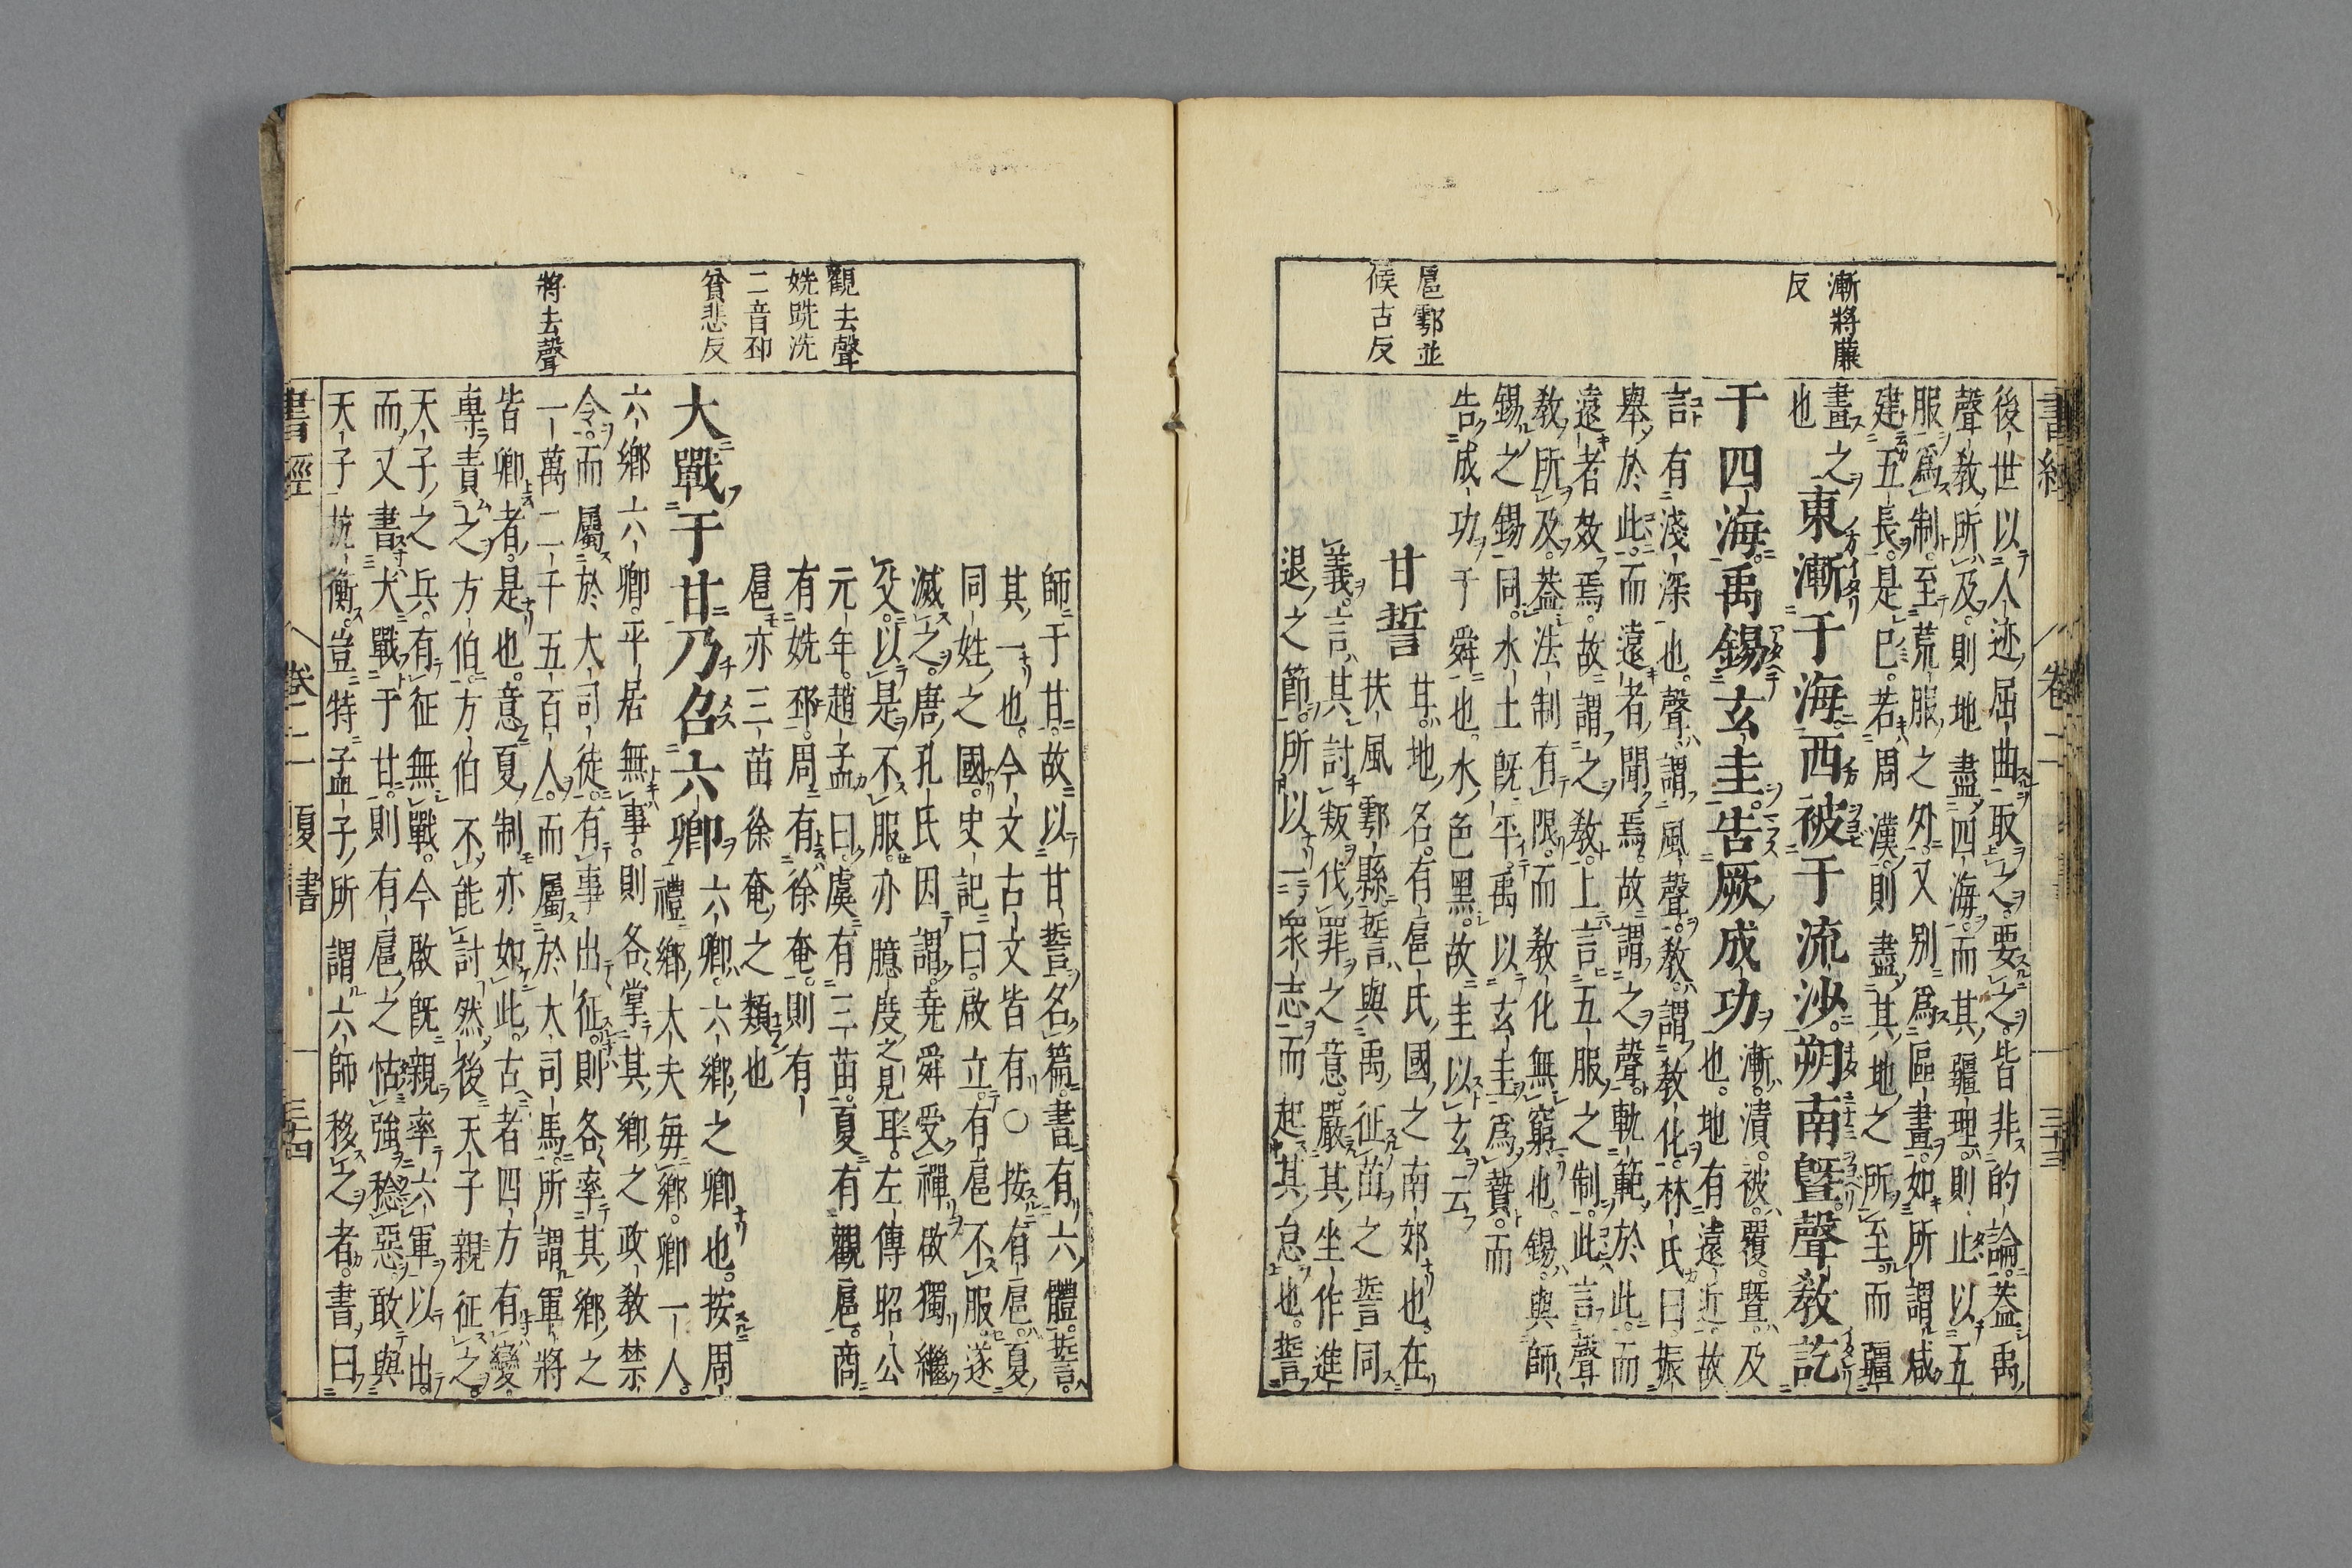 書經
卷二
三十三
漸將廉
反
扈鄠並
候古反
後世以人迹屈曲取之要之皆非的論蓋禹
聲教所及則地盡四海而其疆理則止以五
服爲制至荒服之外又别爲區畫如所謂咸
建五長是已若周漢則盡其地之所至而疆
畫之東漸于海西被于流沙朔南曁聲教訖
也
于四海禹錫玄圭告厥成功漸漬被覆曁及
也地有遠近故
言有淺深也聲謂風聲教謂教化林氏曰振
舉於此而遠者聞焉故謂之聲軌範於此而
遠者效焉故謂之教上言五服之制此言聲
教所及蓋法制有限而教化無窮也錫與師
錫之錫同水土既平禹以玄圭爲贄而
告成功于舜也水色黑故圭以玄云
甘誓甘地名有扈氏國之南郊也在
扶風鄠縣誓與禹征苗之誓同
義言其討叛伐罪之意嚴其坐作進
退之節所以一衆志而起其怠也誓
觀去聲
姺跣洗
二音邳
貧悲反
將去聲
師于甘故以甘誓名篇書有六體誓
其一也今文古文皆有○按有扈夏
同姓之國史記曰啟立有扈不服遂
滅之唐孔氏因謂堯舜受禪啟獨繼
父以是不服亦臆度之見耳左傳昭公
元年趙孟曰虞有三苗夏有觀扈商
有姺邳周有徐奄則有
扈亦三苗徐奄之類也
大戰于甘乃召六卿六卿六鄉之卿也按周
禮鄉大夫每鄉卿一人
六鄉六卿平居無事則各掌其鄉之政教禁
令而屬於大司徒有事出征則各率其鄉之
一萬二千五百人而屬於大司馬所謂軍將
皆卿者是也意夏制亦如此古者四方有變
專責之方伯方伯不能討然後天子親征之
天子之兵有征無戰今啟既親率六軍以出
而又書大戰于甘則有扈之怙強稔惡敢與
天子抗衡豈特孟子所謂六師移之者書曰
書經
卷二
夏書
三十四